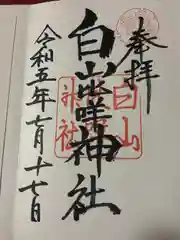 奉拝
白山比咩神社
令和五年七月十七日
白山
神社